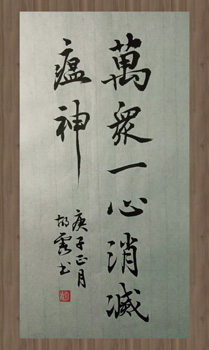 萬眾一心消滅
瘟神
庚子正月
胡露书